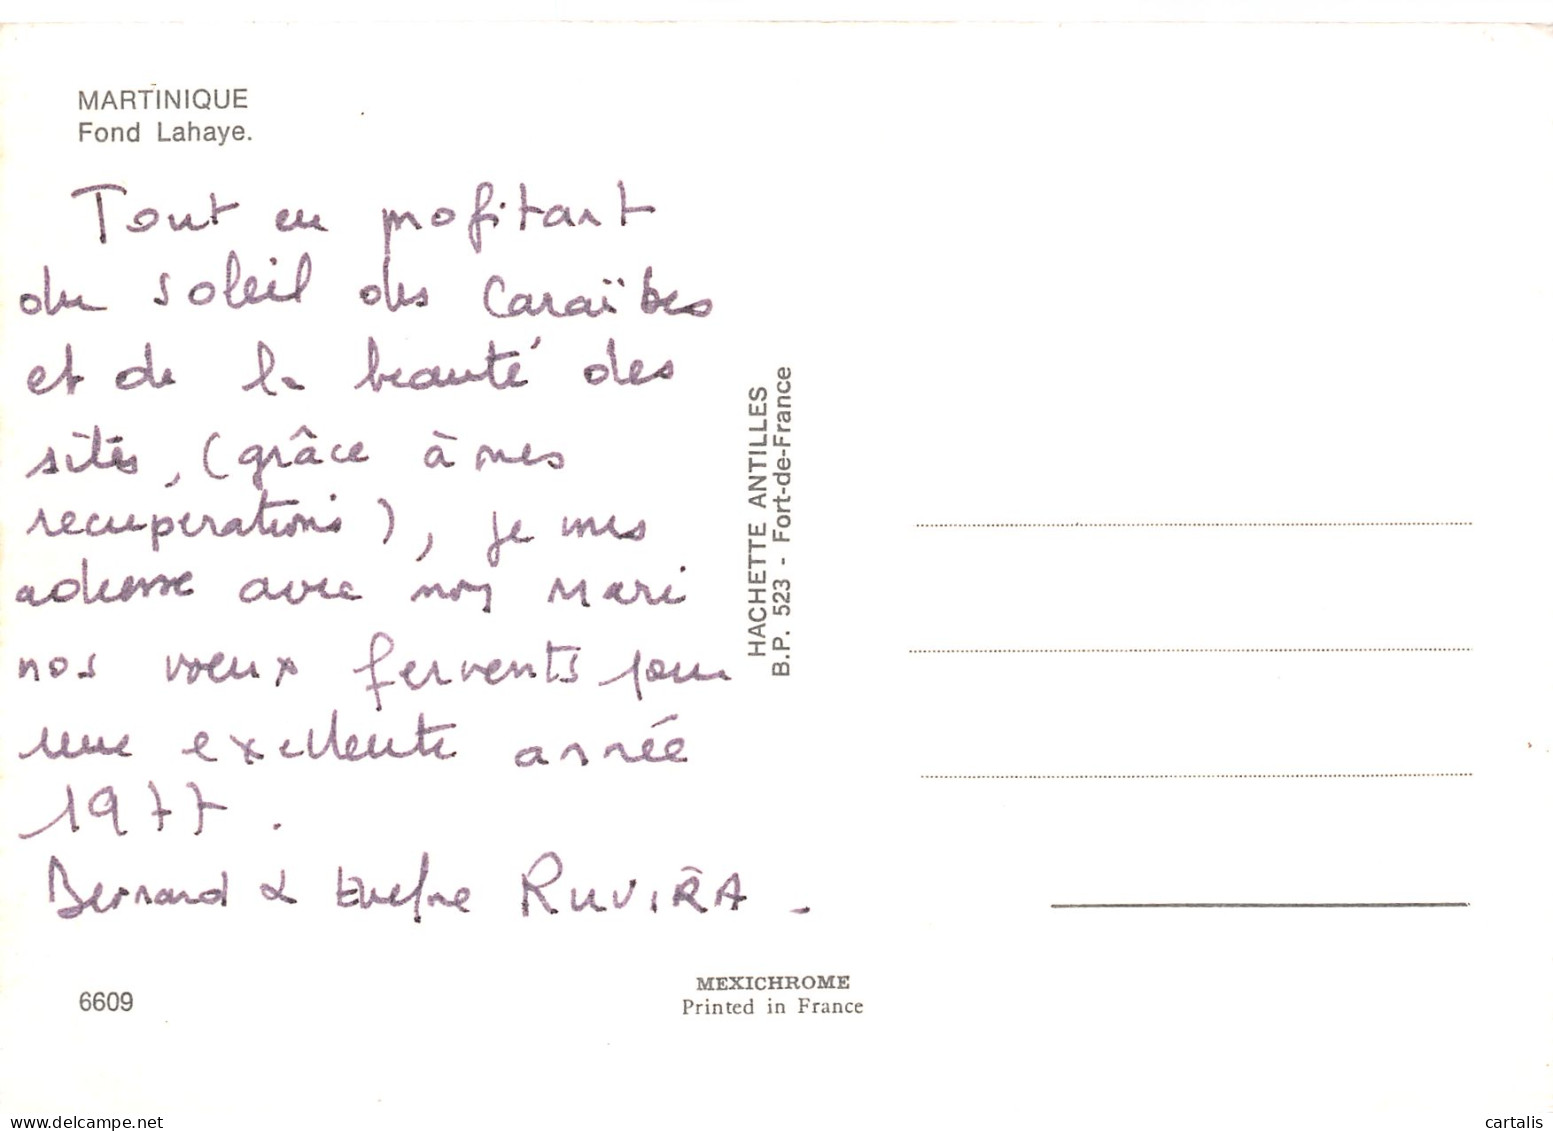 MARTINIQUE
Fond Lahaye.
Tout en profitant
du soleil des Caraïbes
et de la beauté des
sites, (grâce à mes
récupérations), je vous
adresse avec mon mari
nos vœux fervents pour
une excellente année
1977.
Bernard & Evelyne RUVIRA -
HACHETTE ANTILLES
B.P. 523 - Fort-de-France
6609
MEXICHROME
Printed in France
delcampe.net
cartalis